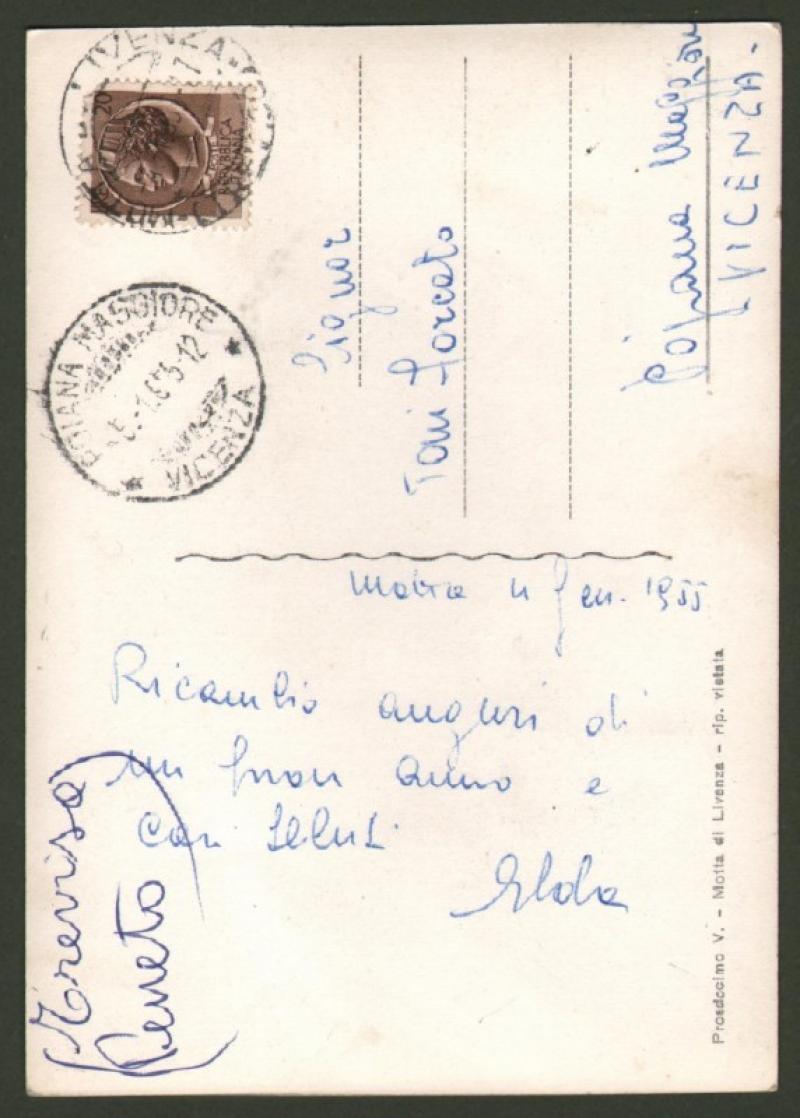 LIVENZA
20
REPUBBLICA
ITALIANA
POIANA MAGGIORE
VICENZA
Signor
Toni
Poiana Maggiore
VICENZA-
Motta 4 gen. 1955
Ricambio auguri di
un buon anno e
Cari saluti
Elda
(Treviso
(Veneto)
Prosdocimo V. - Motta di Livenza - rip. vietata